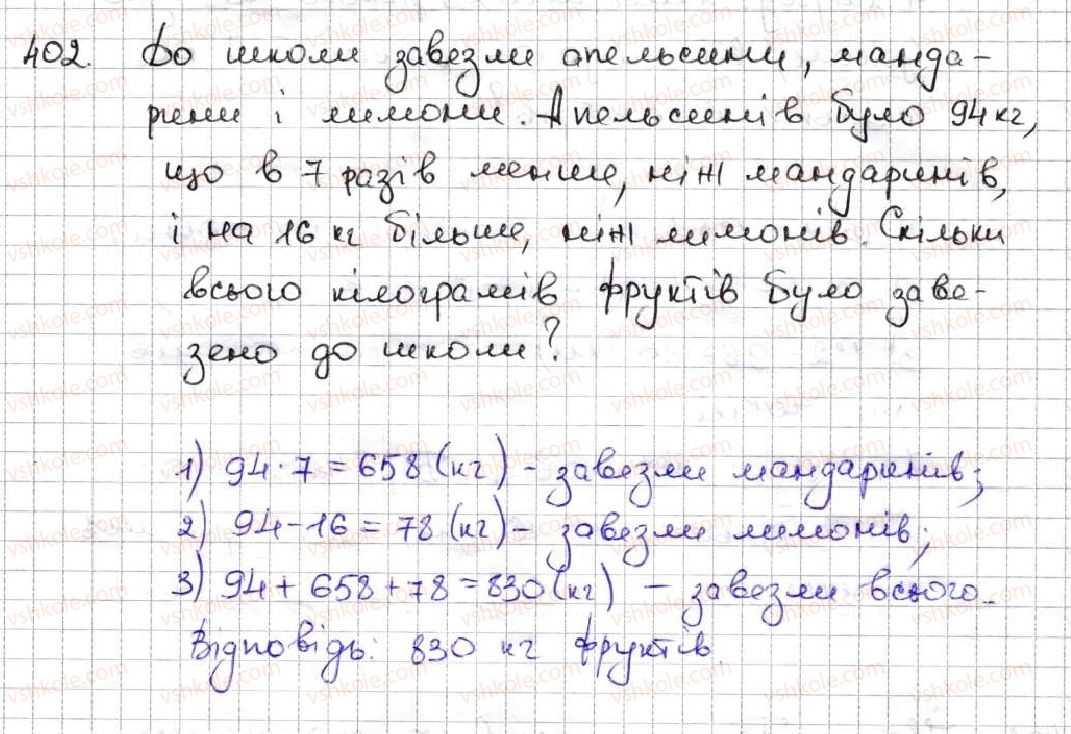 402. До школи завезли апельсини, манда-
рини і лимони. Апельсинів було 94 кг,
що в 7 разів менше, ніж мандаринів,
і на 16 кг більше, ніж лимонів. Скільки
всього кілограмів фруктів було заве-
зено до школи?
1) 94·7=658 (кг) - завезли мандаринів;
2) 94-16=78 (кг) - завезли лимонів;
3) 94+658+78=830 (кг) - завезли всього.
Відповідь: 830 кг фруктів